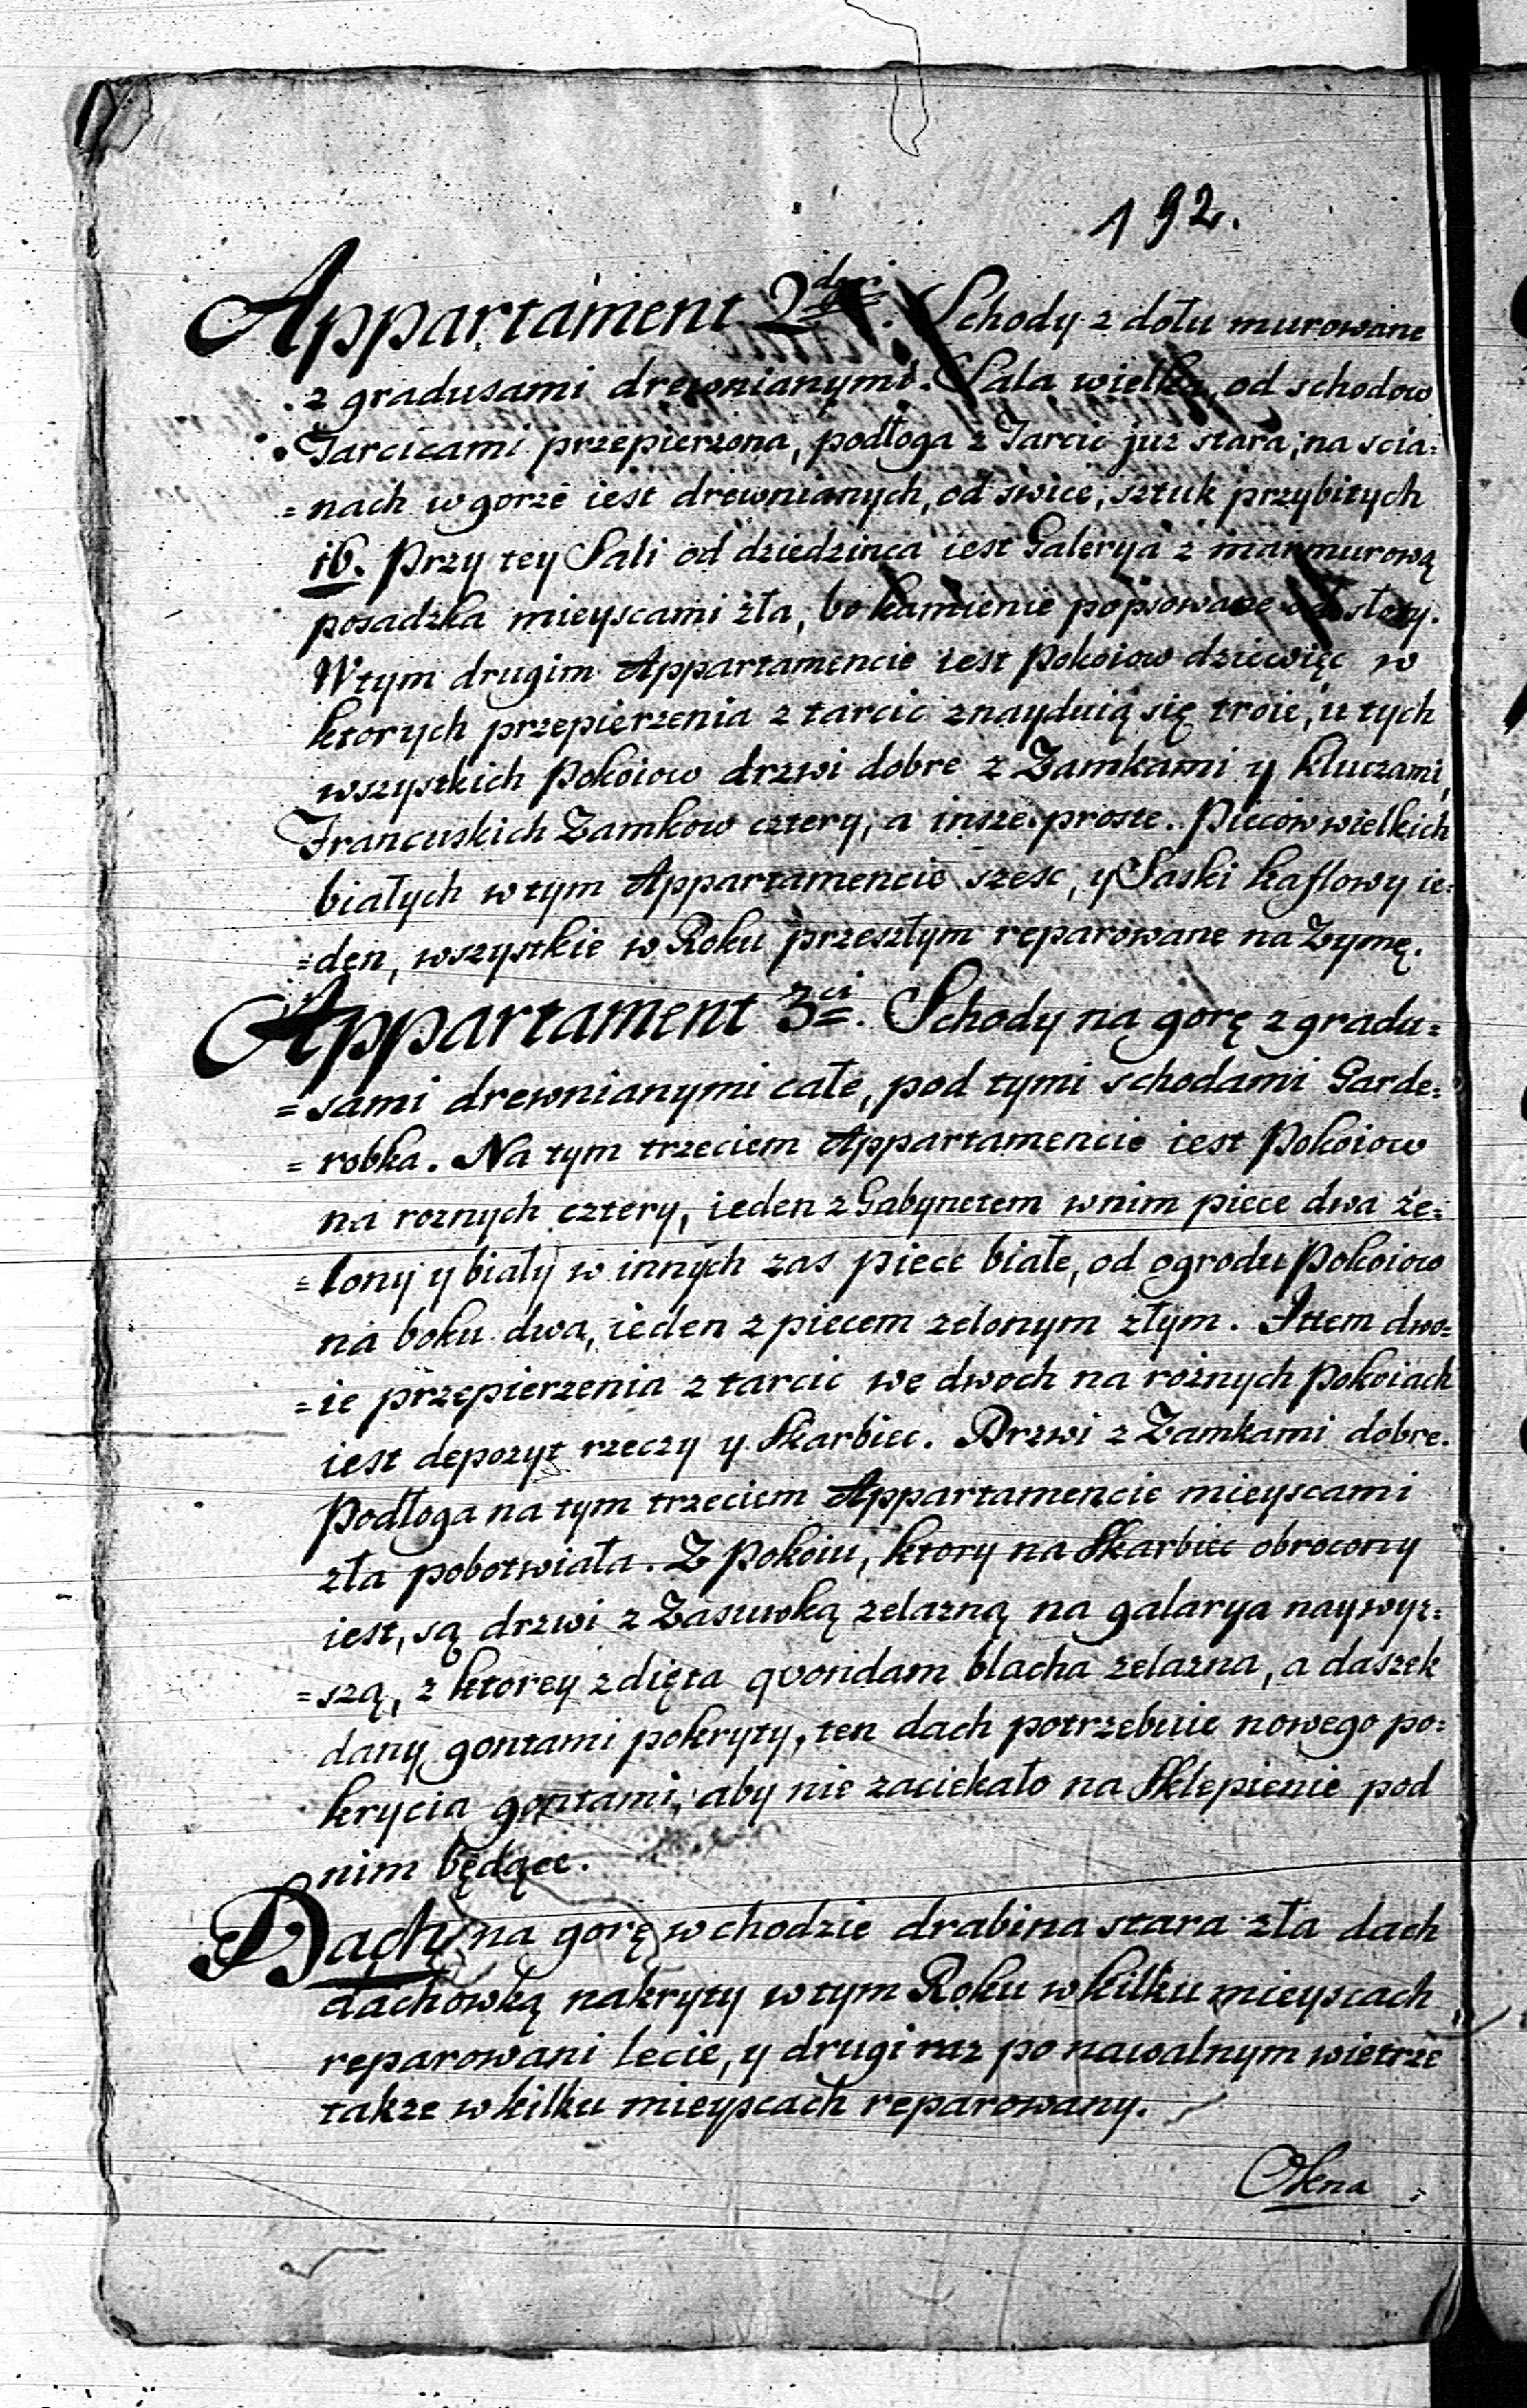 192.
Appartament 2dgi. Schody z dołu murowane
z gradusami drewnianymi. Sala wielka, od schodow
Tarcicami przepierzona, podłoga z Tarcic juz stara, na scia=
=nach w gorze iest drewnianych, od swiec, sztuk przybitych
16. Przy tey Sali od dziedzinca iest Galerya z marmurową
posadzka mieyscami zła, bo kamienie popsowane od słoty.
W tym drugim Appartamencie iest Pokoiow dziewięc w
ktorych przepierzenia z tarcic znayduią się troie, u tych
wszystkich Pokoiow drzwi dobre z Zamkami y kluczami,
Francuskich Zamkow cztery, a insze proste. Piecow wielkich
białych w tym Appartamencie szesc, y Saski kaflowy ie=
=den, wszystkie w Roku przeszłym reparowane na Zymę.
Appartament 3ci. Schody na gorę z gradu=
=sami drewnianymi całe, pod tymi schodami Garde=
=robka. Na tym trzeciem Appartamencie iest Pokoiow
na roznych cztery, ieden z Gabynetem w nim piece dwa źe=
=lony y biały w innych zas piece białe, od ogrodu Pokoiow
na boku dwa, ieden z piecem zelonym złym. Ittem dwo=
=ie przepierzenia z tarcic we dwoch na rożnych Pokoiach
iest depozyt rzeczy y Skarbiec. Drzwi z Zamkami dobre.
Podłoga na tym trzeciem Appartamencie mieyscami
zła pobotwiała. Z Pokoiu, ktory na Skarbiec obrocony
iest, są drzwi z Zasuwką zelazną na galarya naywyz=
=szą, z ktorey zdięta quondam blacha zelazna, a daszek
dany gontami pokryty, ten dach potrzebuie nowego po=
krycia gontami, aby nie zaciekało na Sklepienie pod
nim będące.
Dach na gorę w chodzie drabina stara zła dach
dachowką nakryty w tym Roku w kilku mieyscach
reparowani lecie, y drugi raz po nawalnym wietrze
takze w kilku mieyscach reparowany.
Okna =